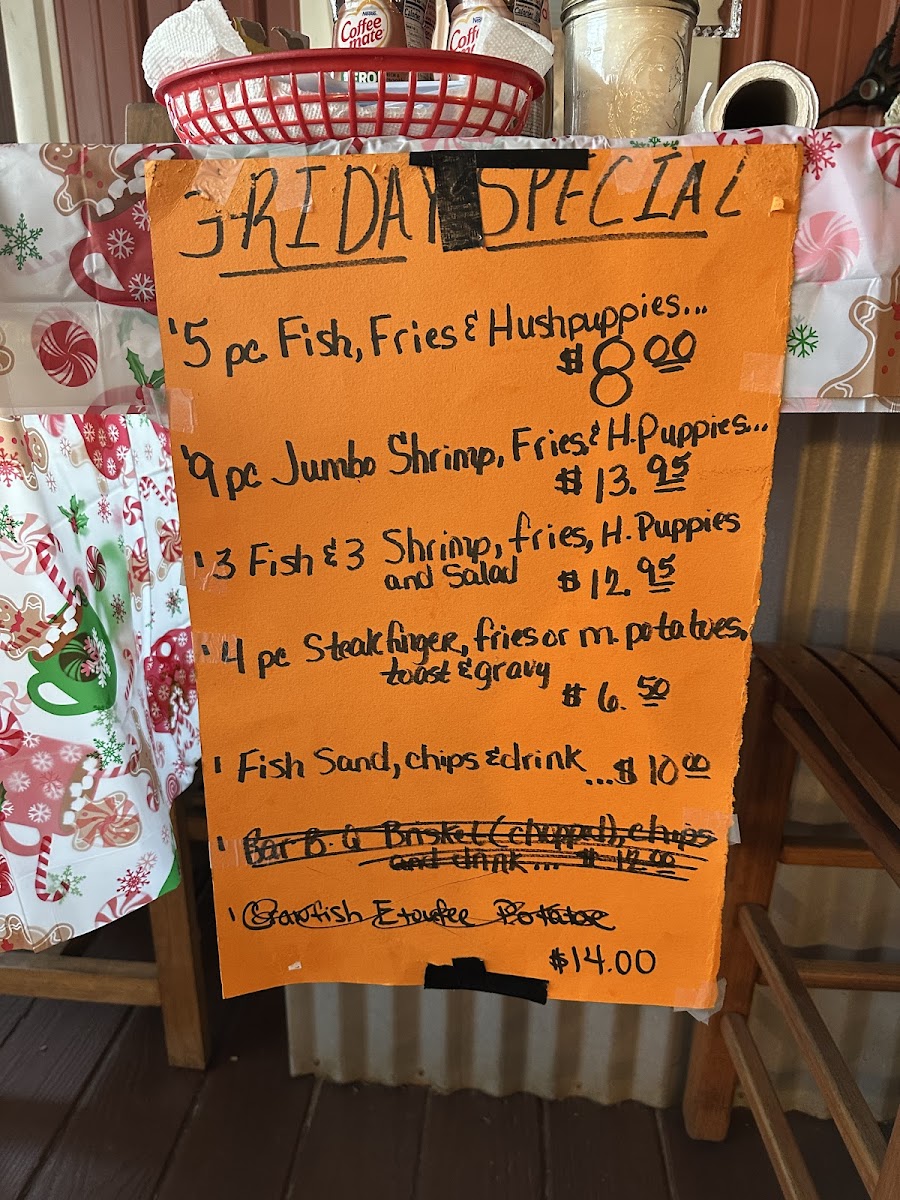 NESTLE
Coffee mate
ZERO
Coff
FRIDAY SPECIAL
'5 pc Fish, Fries & Hushpuppies...
$8.00
'9 pc Jumbo Shrimp, Fries & H. Puppies...
$13.95
'3 Fish & 3 Shrimp, fries, H. Puppies
and Salad $12.95
'4 pc Steak finger, fries or m. potatoes,
toast & gravy
$6.50
' Fish Sand, chips & drink ...$10.00
' Bar B. Q Brisket (chopped), chips
and drink... $12.00
' Crawfish Etoufee Potatoe
$14.00